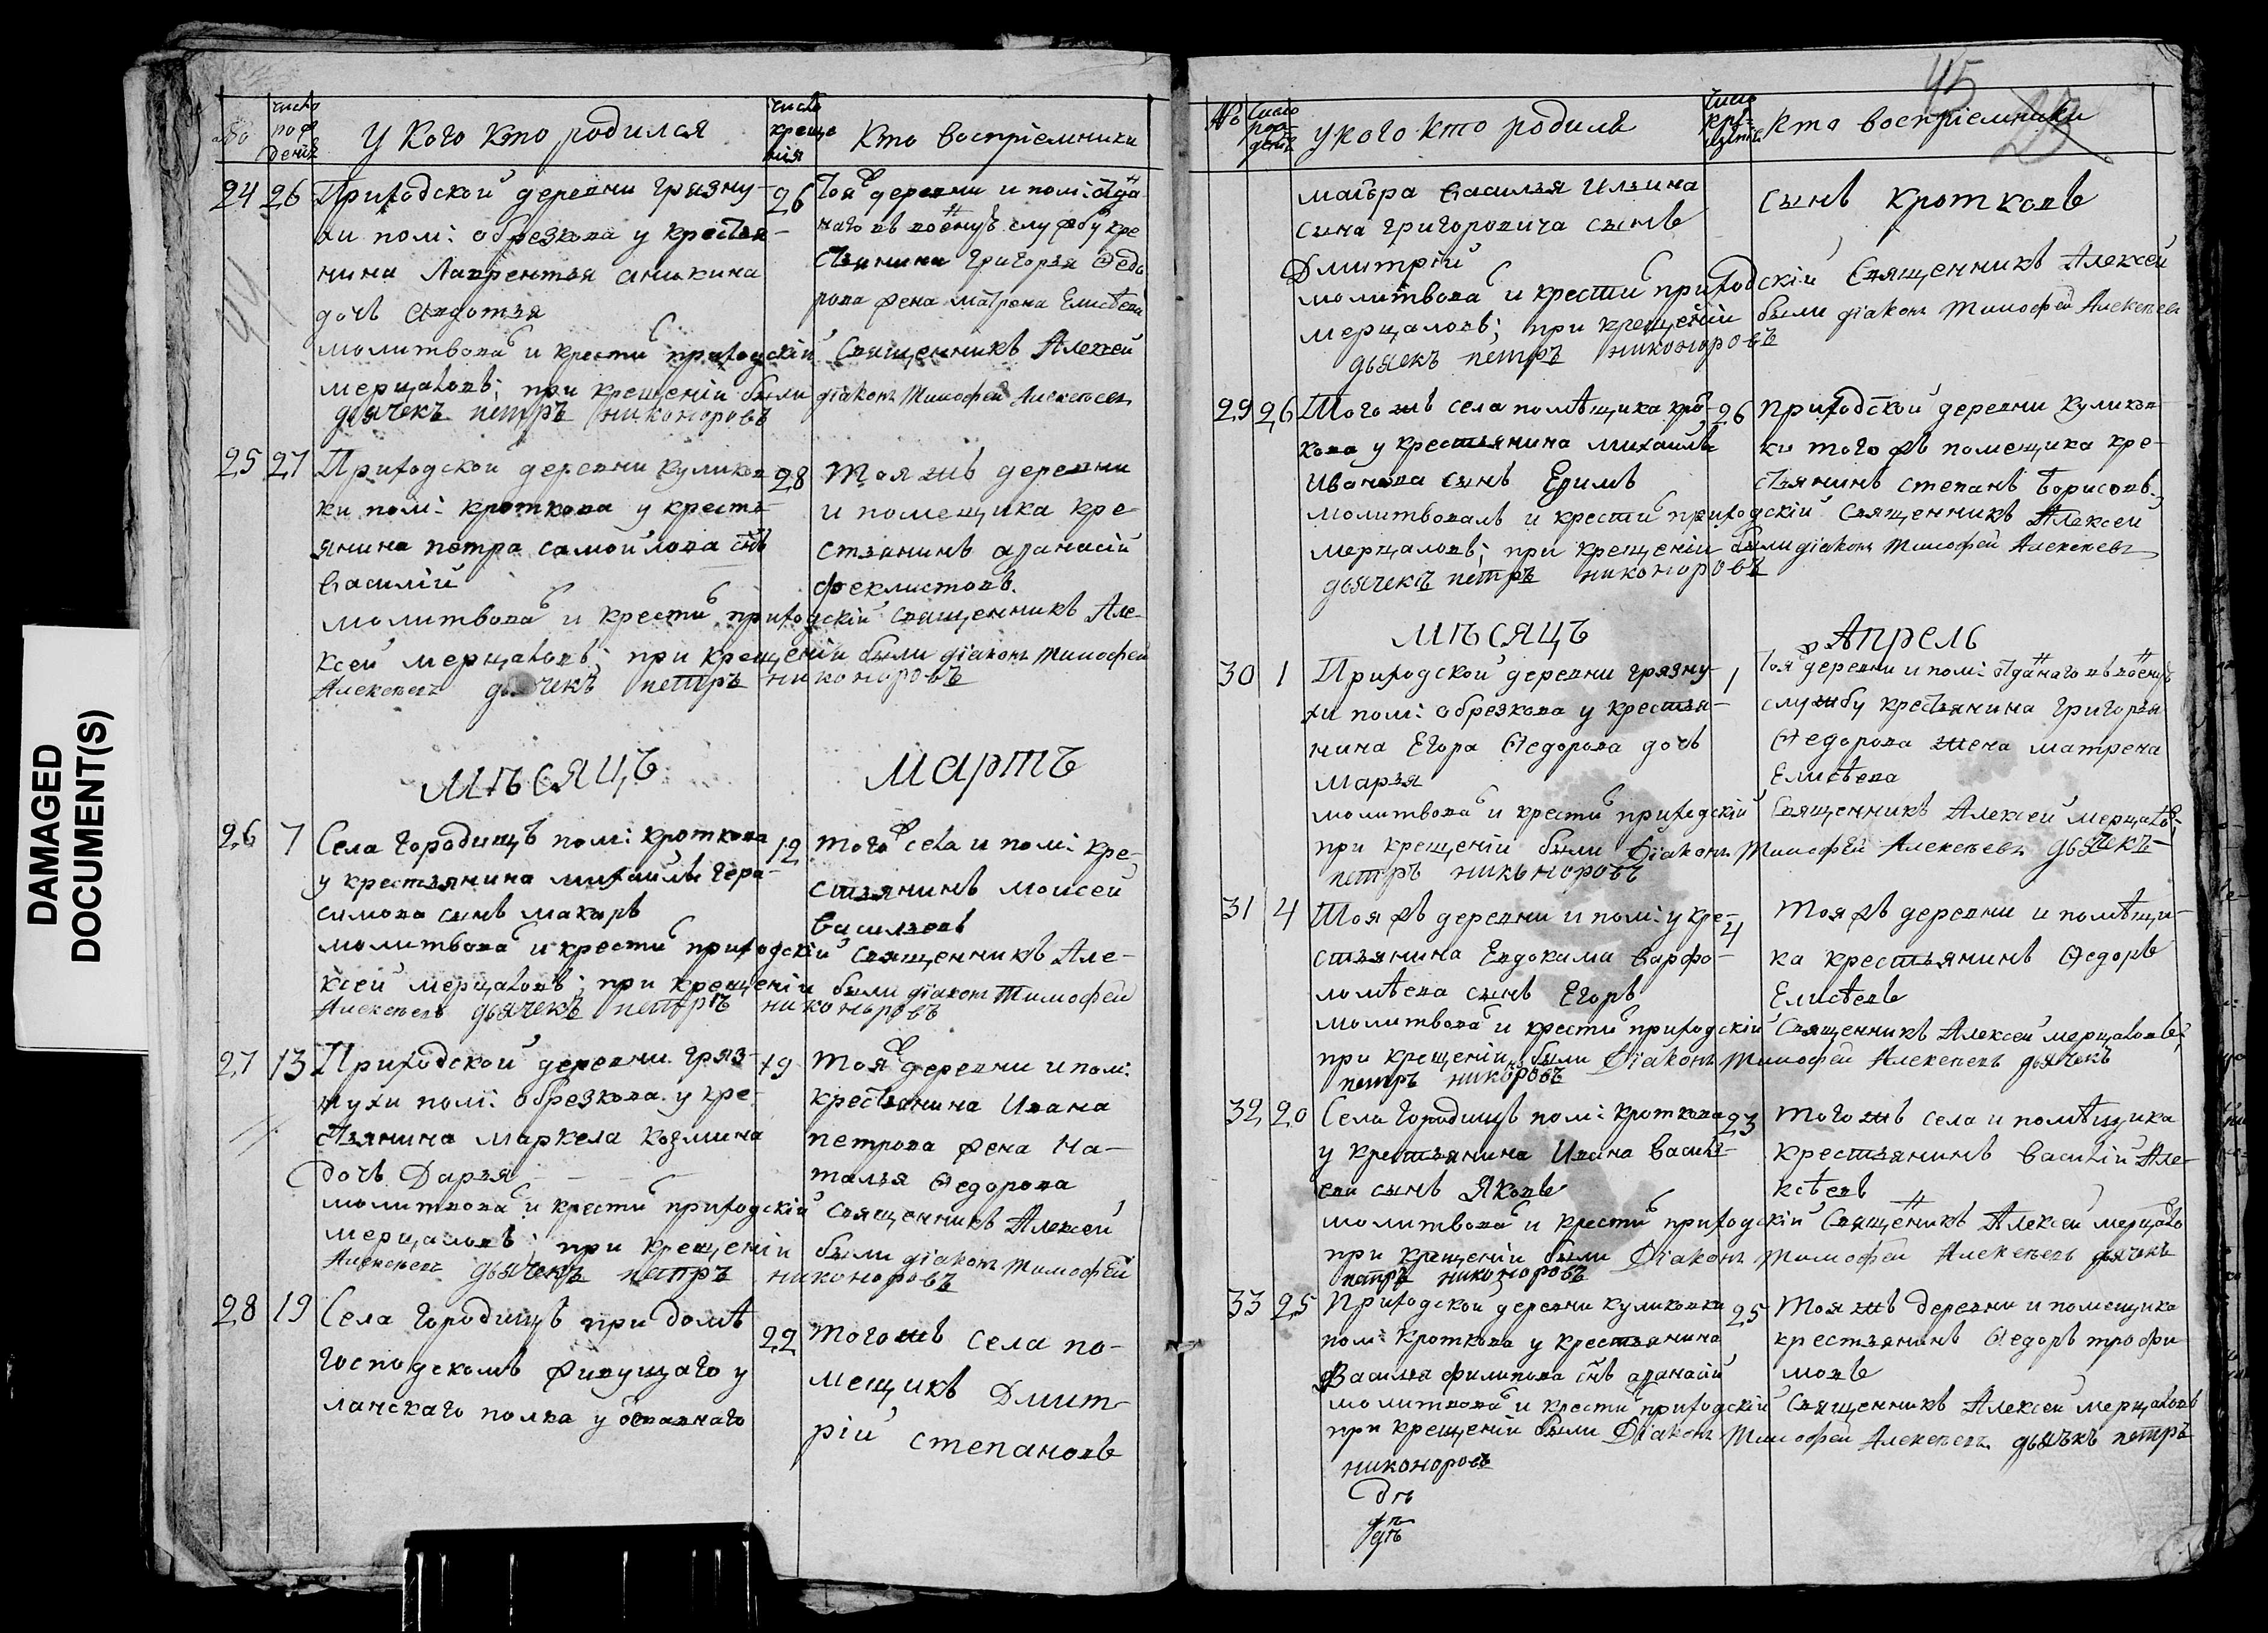 DAMAGED
DOCUMENT(S)
№
число рождения
У Кого Кто родился
число крещения
Кто воспріемники
24 26 Приходской деревни грязну-
хи пом: обрезкова у крестья-
нина Лаврентья аникина
дочь Авдотья
26 Тоя ж деревни и пом: отдан
наго въ военную службу кре
стьянина Григорья Ѳедо
рова жена матрена Елисѣева
молитвовал и крестил приходскій Священникъ Алексей
мерцаловъ; при крещеніи были діаконъ Тимофей Алексѣевъ
дьячекъ петръ никоноровъ
25 27 Приходской деревни куликов
ки пом: кроткова у кресть
янина петра самойлова снъ
василій
28 Тоя жъ деревни
и помещика кре
стьянинъ аѳанасій
феклистовъ.
молитвовал и крестил приходскій священникъ Але-
ксей мерцаловъ; при крещеніи были діаконъ Тимофей
Алексѣевъ дьячекъ петръ никоноровъ
мѣсяцъ мартъ
26 7 Села городищъ пом: кроткова
у крестьянина михайлы гера-
симова сынъ макаръ
12 того ж села и пом: кре-
стьянинъ моисей
васильевъ
молитвовал и крестил приходскій священникъ Але-
ксей мерцаловъ; при крещеніи были діаконъ Тимофей
Алексѣевъ дьячекъ петръ никоноровъ
27 13 Приходской деревни гряз-
нухи пом: обрезкова у кре-
стьянина маркела козмина
дочь Дарья
19 Тоя ж деревни и пом:
крестьянина Ивана
петрова жена На-
талья Ѳедорова
молитвовал и крестил приходскій священникъ Алексей
мерцаловъ; при крещеніи были діаконъ Тимофей
Алексѣевъ дьячекъ петръ никоноровъ
28 19 Села городищъ при домѣ
господскомъ живущаго у
ланскаго полка у отставнаго
22 того жъ села по-
мещикъ Дмит-
рій степановъ
45
№
число рожденія
у кого кто родилъ
число крещенія
кто воспріемники
маіора василья ильина
сына григоровича сынъ
Дмитрій
сынъ кротковъ
молитвовал и крестил приходскій Священникъ Алексей
мерцаловъ; при крещеніи были діаконъ Тимофей Алексѣевъ
дьячекъ петръ никоноровъ
29 26 Того жъ села помѣщика крот
кова у крестьянина михайлы
Иванова сынъ Ефимъ
26 приходской деревни куликов
ки того жъ помещика кре-
стьянинъ степанъ борисовъ.
молитвовалъ и крестил приходскій Священникъ Алексей
мерцаловъ; при крещеніи были діаконъ Тимофей Алексѣевъ
дьячекъ петръ никоноровъ
мѣсяцъ Апрель
30 1 Приходской деревни грязну-
хи пом: обрезкова у крестья-
нина Егора Ѳедорова дочь
марья
1 Тоя ж деревни и пом: отданнаго въ военную
службу крестьянина григорья
Ѳедорова жена матрена
Елисѣева
молитвовал и крестил приходскій Священникъ Алексей мерцаловъ;
при крещеніи были Діаконъ Тимофей Алексѣевъ дьячекъ
петръ никоноровъ
31 4 Тоя жъ деревни и пом: у кре-
стьянина Евдокима варфо-
ломѣева сынъ Егоръ
4 Тоя жъ деревни и помѣщи-
ка крестьянинъ Ѳедоръ
Елисѣевъ
молитвовал и крестил приходскій Священникъ Алексей мерцаловъ;
при крещеніи были Діаконъ Тимофей Алексѣевъ дьячекъ
петръ никоноровъ
32 20 Села городищъ пом: кроткова
у крестьянина Ивана василь-
ева сынъ Яковъ
23 того жъ села и помѣщика
крестьянинъ василій Але-
ксѣевъ
молитвовал и крестил приходскій Священникъ Алексей мерцалов
при крещеніи были Діаконъ Тимофей Алексѣевъ дьячекъ
петръ никоноровъ
33 25 Приходской деревни куликовки
пом: кроткова у крестьянина
василья филипова снъ аѳанасій
25 Тоя жъ деревни и помещика
крестьянинъ Ѳедоръ трофи
мовъ
молитвовал и крестил приходскій Священникъ Алексей мерцаловъ
при крещеніи были Діаконъ Тимофей Алексѣевъ дьячекъ петръ
никоноровъ